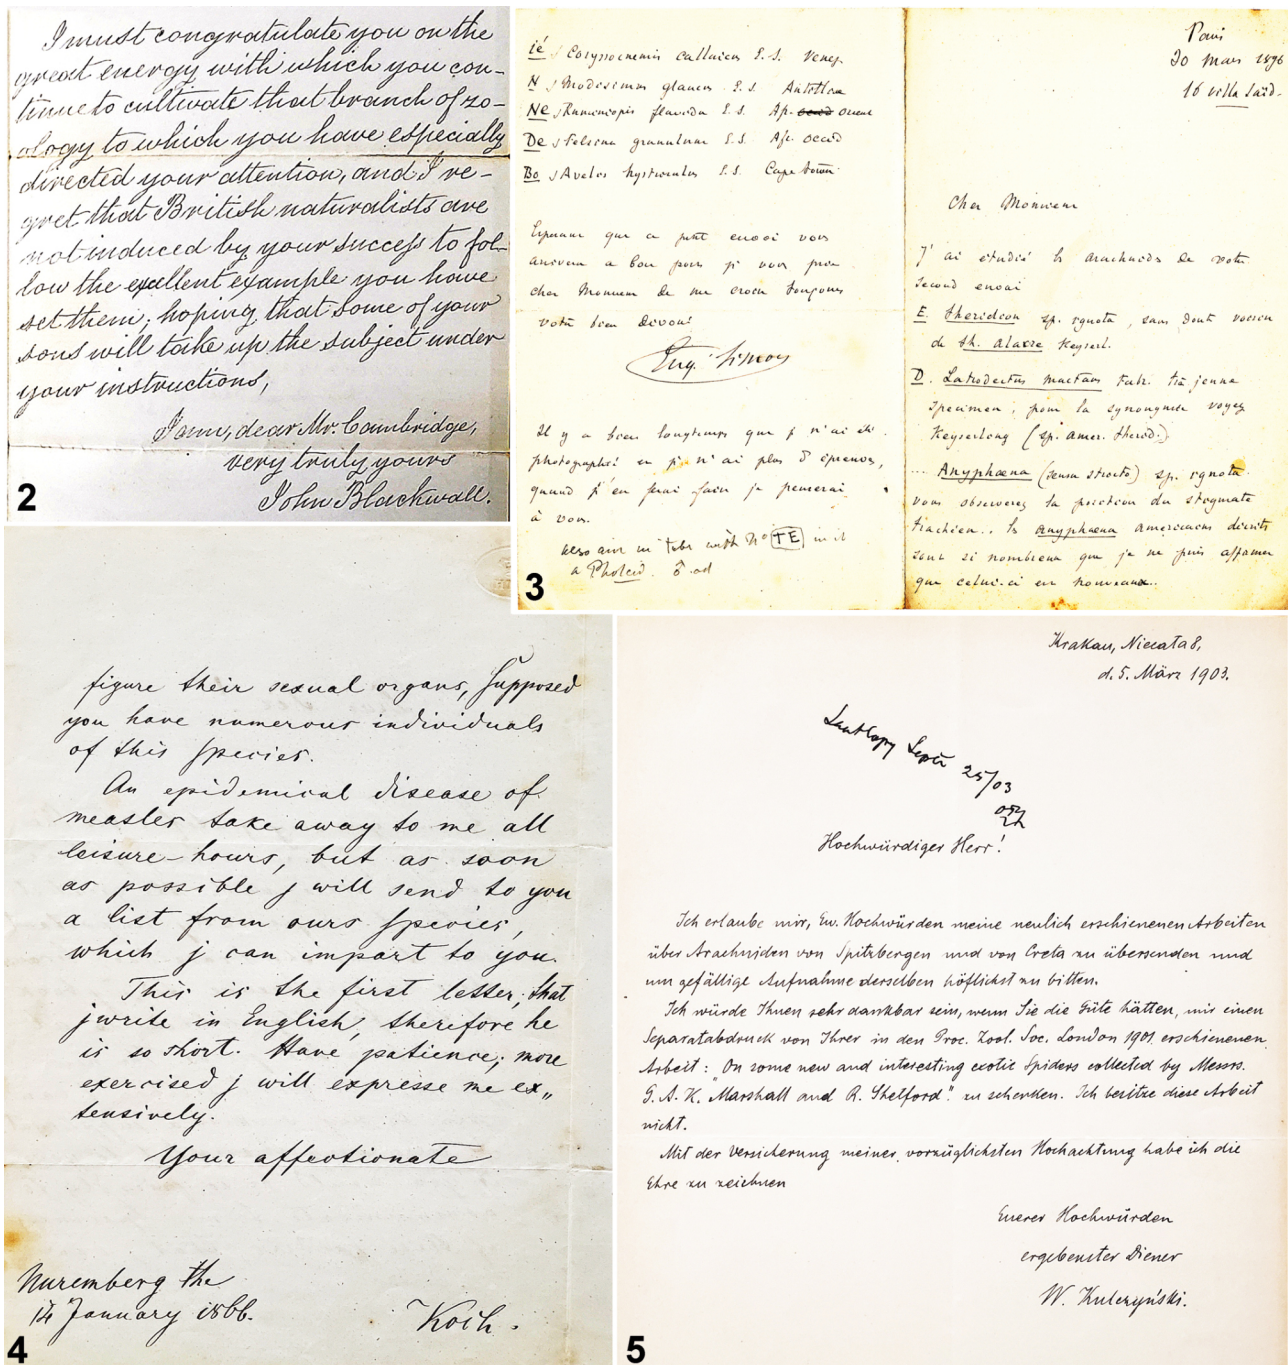 I must congratulate you on the
great energy with which you con-
tinue to cultivate that branch of zo-
ology to which you have especially
directed your attention, and I re-
gret that British naturalists are
not induced by your success to fol-
low the excellent example you have
set them; hoping that some of your
sons will take up the subject under
your instructions,
I am, dear Mr. Cambridge,
very truly yours
John Blackwall.
2
ié Corynocnemis E.S. Venez
N Modisimus glaucus E.S. Antilles
Ne flavida E.S. Af. occid orient
De Selsina granulum E.S. Af. occid
Bo Avelis hystriculus E.S. Cape town
Espérant que ce petit envoi vous
arrivera a bon port je vous prie
cher Monsieur de me croire toujours
votre bien dévoué
Eug. Simon
Il y a bien longtemps que je n'ai été
photographié et je n'ai plus d'épreuves,
quand j'en ferai faire je penserai
à vous.
also are in tube with No TE in it
a Pholcid. ♂ ad
3
Paris
30 mars 1896
16 villa Saïd.
Cher Monsieur
J'ai étudié les arachnides de votre
second envoi
E. Theridion sp. ignota, sans doute voisin
de th. alacre Keyserl.
D. Latrodectus mactans Fabr. très jeune
specimen; pour la synonymie voyez
Keyserling (Sp. Amer. Therid.)
... Anyphaena (sensu stricto) sp. ignota
vous observerez la position du stigmate
trachéen.. les Anyphaena americains décrits
sont si nombreux que je ne puis affirmer
que celui-ci est nouveau..
figure their sexual organs, supposed
you have numerous individuals
of this species.
An epidemical disease of
measles take away to me all
leisure-hours, but as soon
as possible j will send to you
a list from ours species,
which j can impart to you.
This is the first letter, that
j write in English, therefore he
is so short. Have patience; more
exercised j will expresse me ex„
tensively.
Your affectionate
Nuremberg the
14 January 1866.
Koch.
4
Krakau, Niecała 8,
d. 5. März 1903.
Sent Copy Septr 25/03
Hochwürdiger Herr!
Ich erlaube mir, Ew. Hochwürden meine neulich erschienenen Arbeiten
über Arachniden von Spitzbergen und von Creta zu übersenden und
um gefällige Aufnahme derselben höflichst zu bitten.
Ich würde Ihnen sehr dankbar sein, wenn Sie die Güte hätten, mir einen
Separatabdruck von Ihrer in den Proc. Zool. Soc. London 1901 erschienenen
Arbeit: „On some new and interesting exotic Spiders collected by Messrs.
G. A. K. Marshall and R. Shelford." zu schenken. Ich besitze diese Arbeit
nicht.
Mit der Versicherung meiner vorzüglichsten Hochachtung habe ich die
Ehre zu zeichnen
Euerer Hochwürden
ergebenster Diener
W. Kulczyński.
5